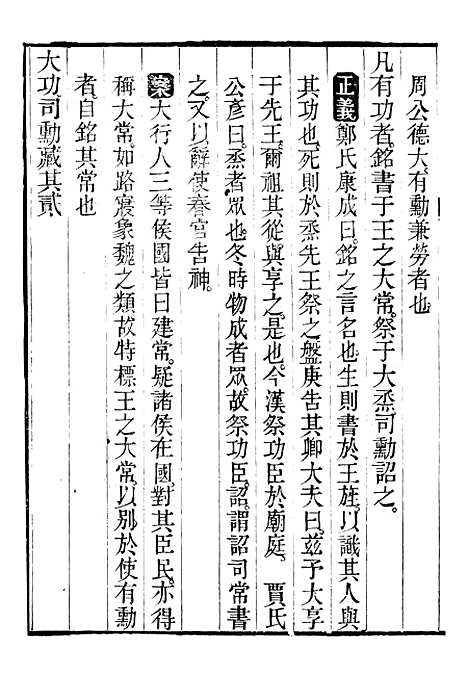 周公德大有勳兼勞者也
凡有功者銘書于王之大常祭于大烝司勳詔之
正義鄭氏康成曰銘之言名也生則書於王旌以識其人與
其功也死則於烝先王祭之盤庚告其卿大夫曰茲予大享
于先王爾祖其從與享之是也今漢祭功臣於廟庭　賈氏
公彥曰烝者眾也冬時物成者眾故祭功臣詔謂詔司常書
之又以辭使春官告神
案大行人三等侯國皆曰建常疑諸侯在國對其臣民亦得
稱大常如路寢象魏之類故特標王之大常以別於使有勳
者自銘其常也
大功司勳藏其貳